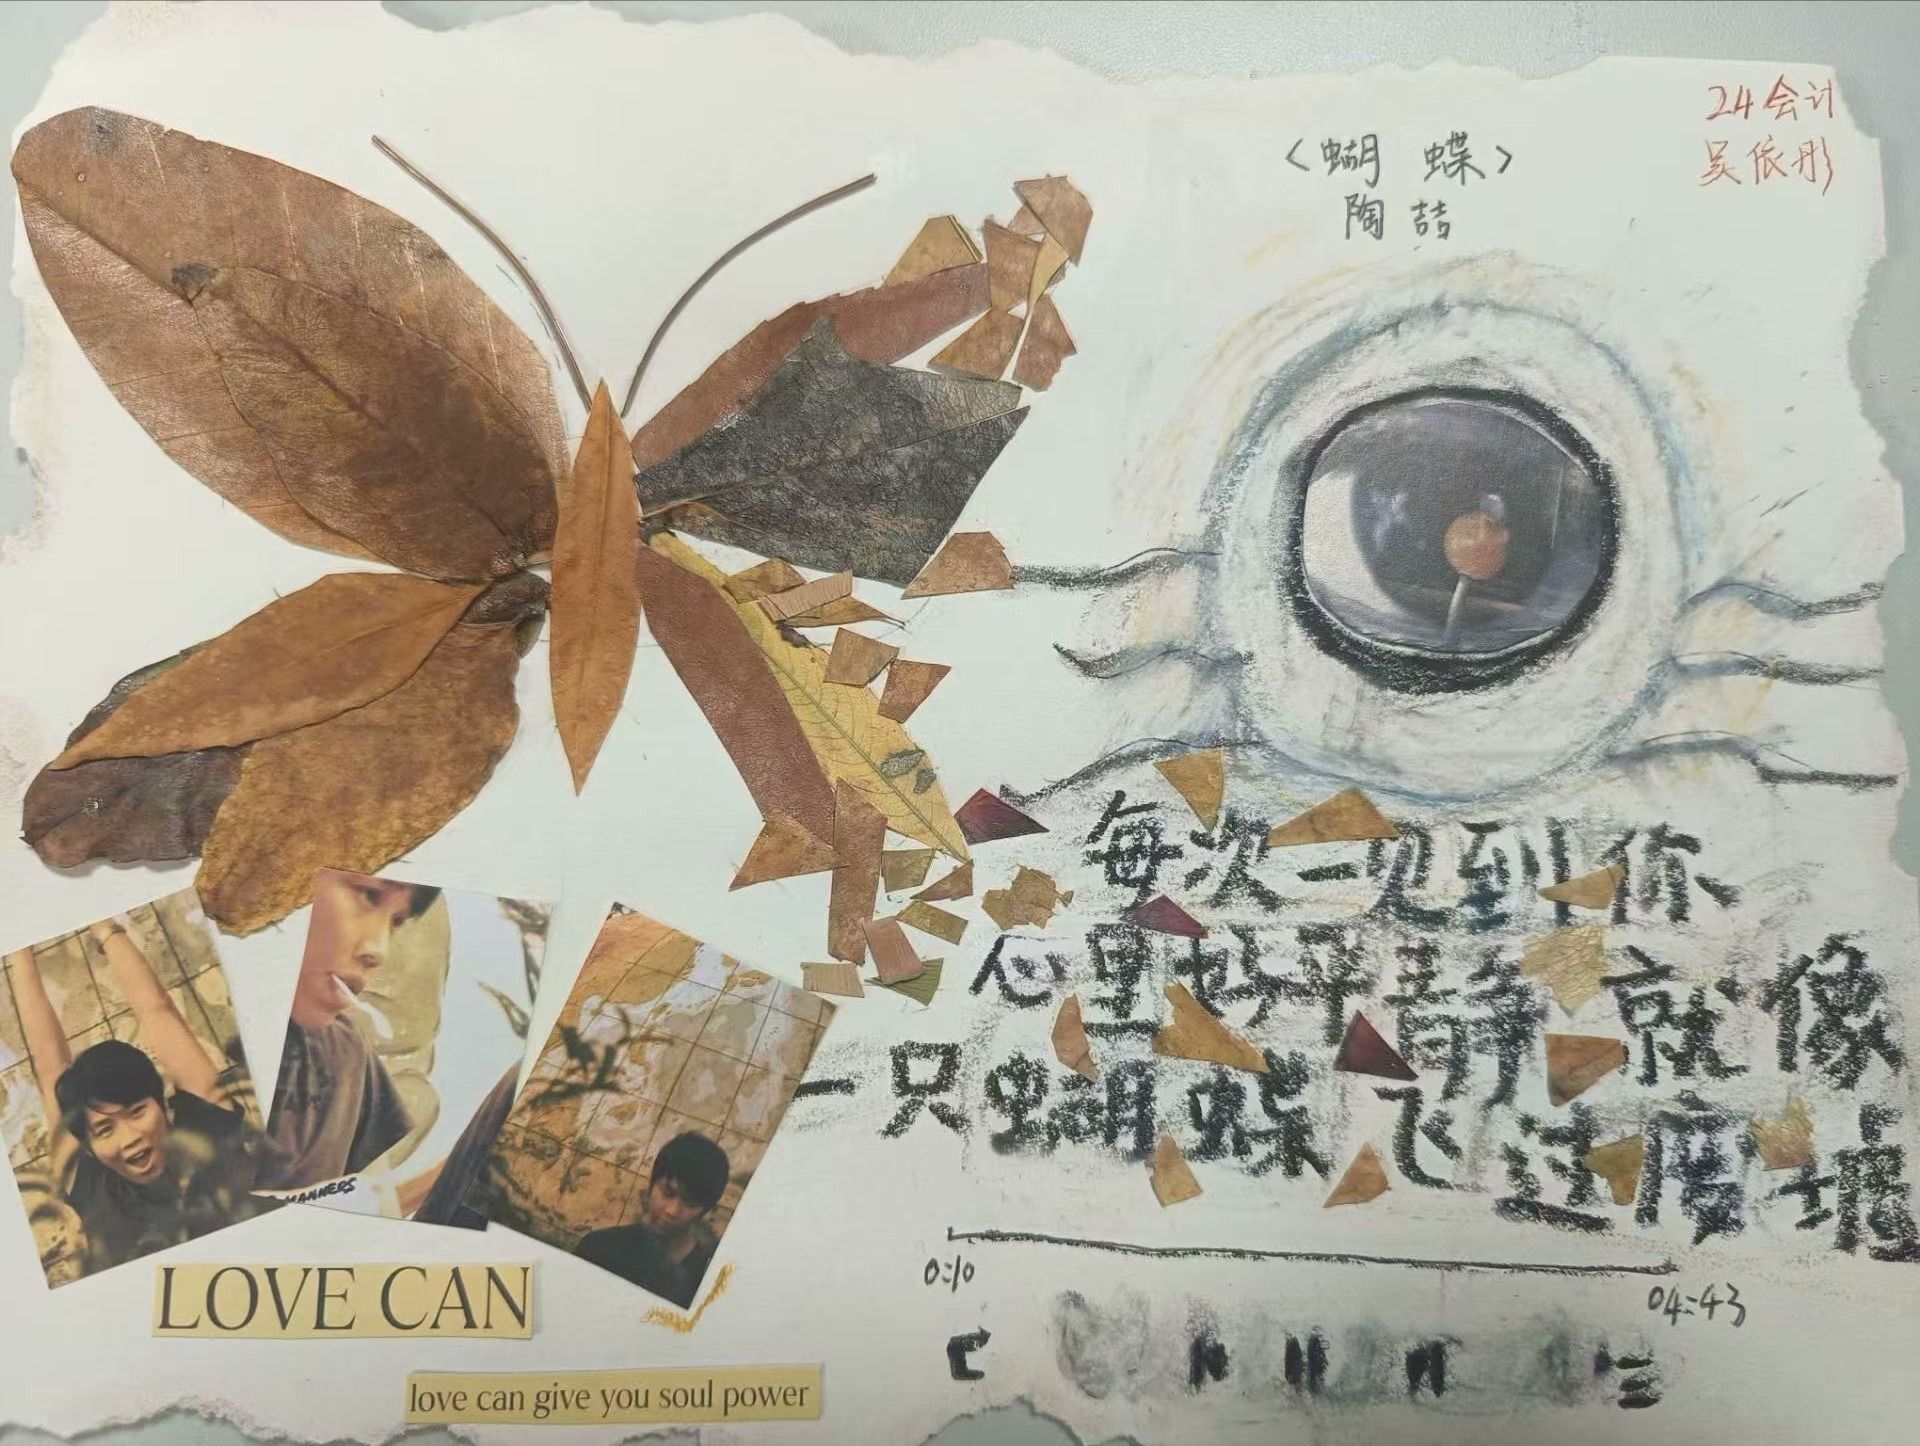 24会计
吴依彤
〈蝴 蝶〉
陶喆
每次一见到你
心里好平静就像
一只蝴蝶飞过废墟
0:10
04:43
MANNERS
LOVE CAN
love can give you soul power